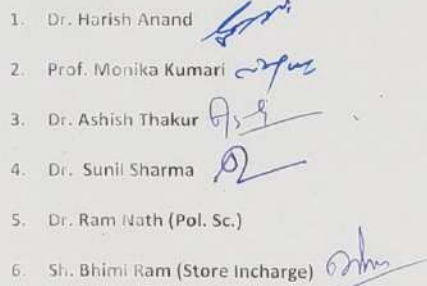 1. Dr. Harish Anand
2. Prof. Monika Kumari
3. Dr. Ashish Thakur
4. Dr. Sunil Sharma
5. Dr. Ram Nath (Pol. Sc.)
6. Sh. Bhimi Ram (Store Incharge)